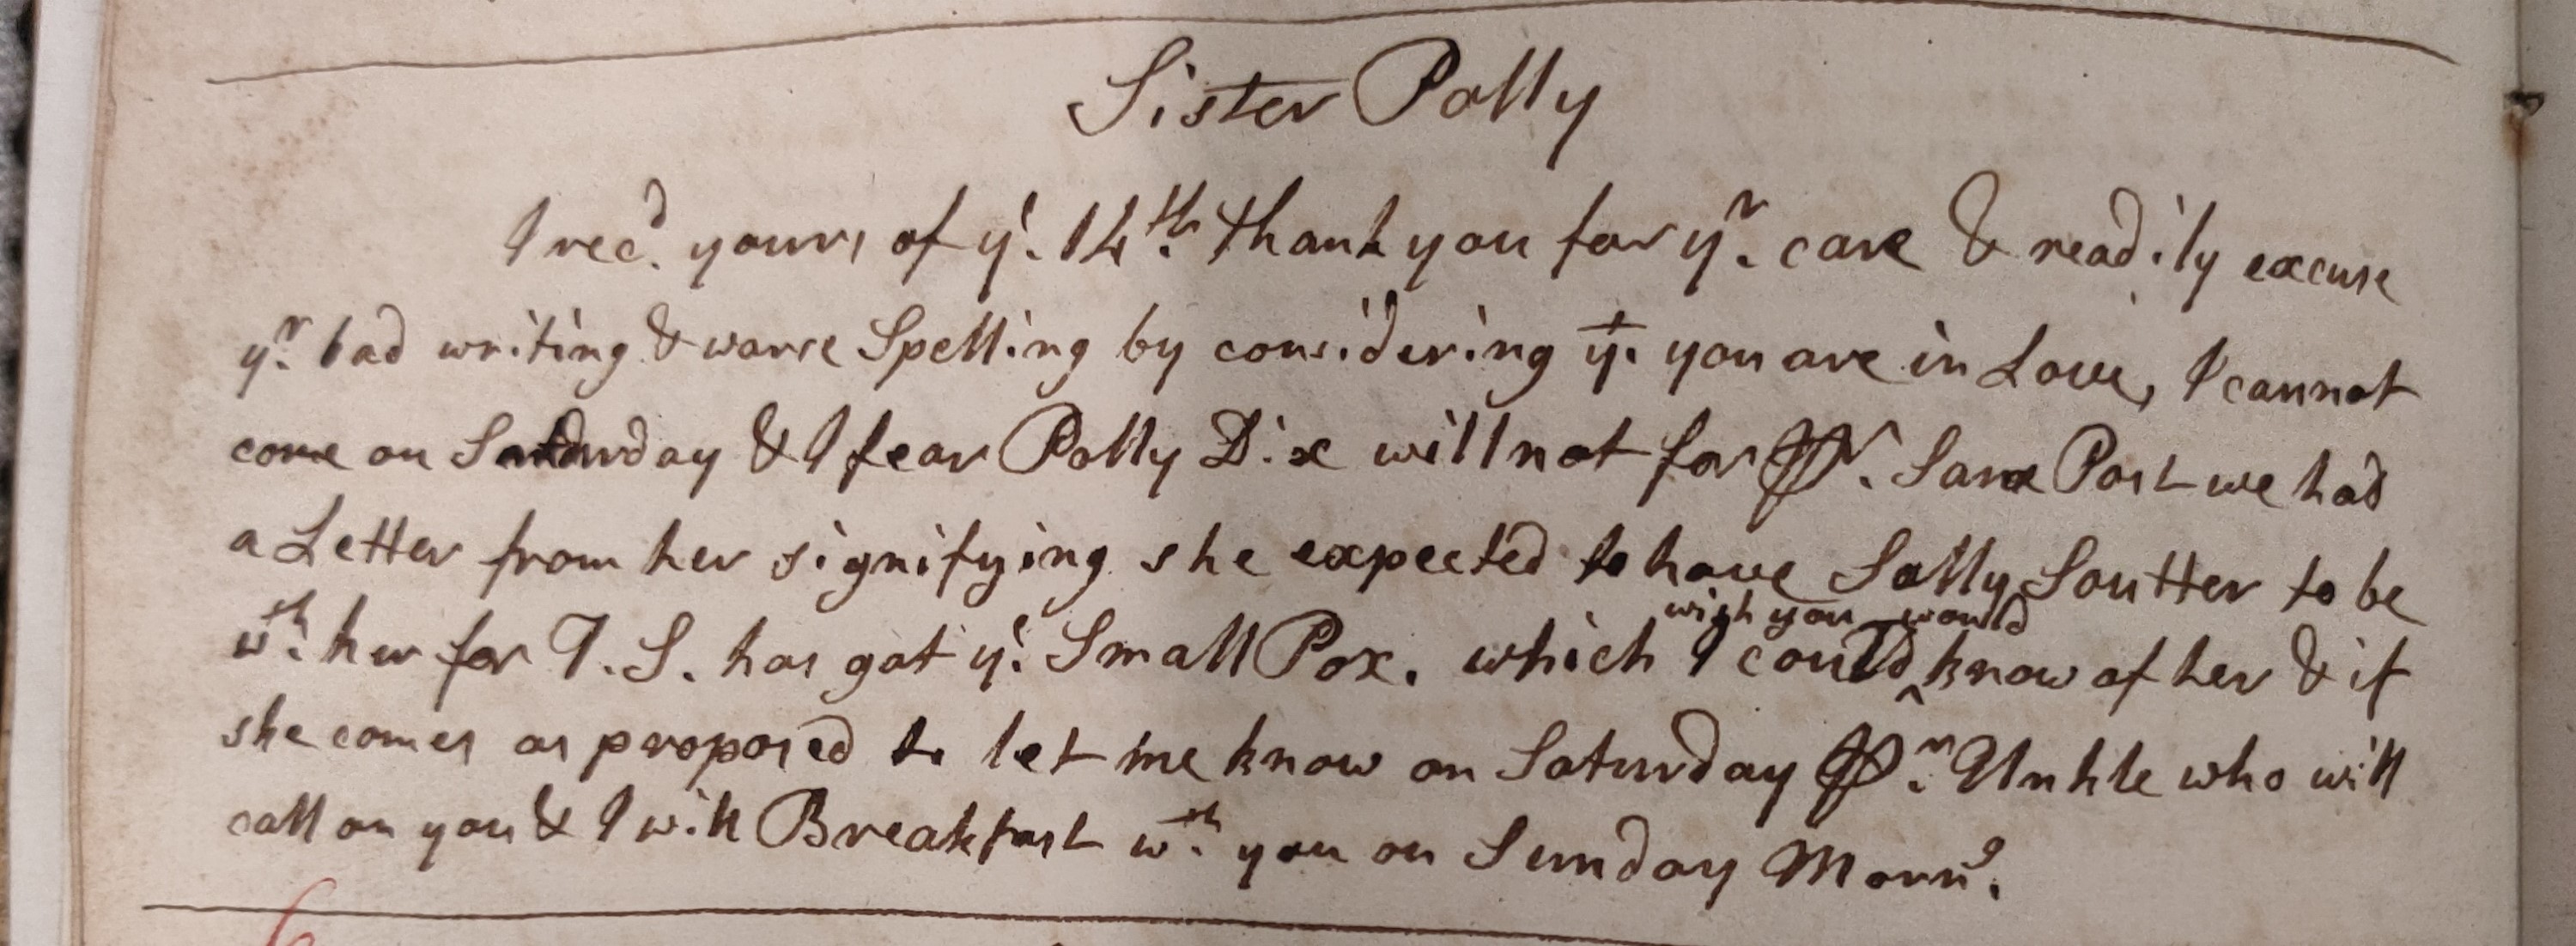 Sister Polly
I rec^d. yours of y^e. 14^th. thank you for y^r. care & readily excuse
y^r. bad writing & worse Spelling by considering y^t. you are in Love, I cannot
come on Saturday & I fear Polly Dix will not for ⅌^r. Same Post we had
a Letter from her signifying she expected to have Sally Soutter to be
w^th. her for T. S. has got y^e. Small Pox. which I could
wish you would
know of her & if
she comes as proposed to let me know on Saturday ⅌^r. Unkle who will
call on you & I will Breakfast w^th. you on Sunday Morn^g.